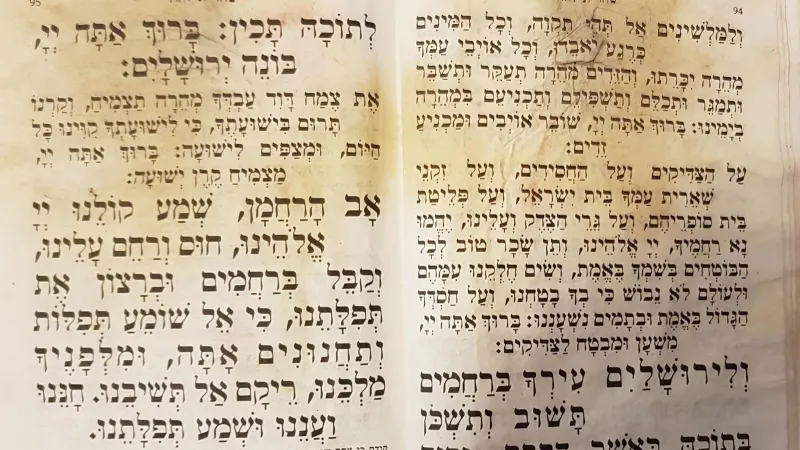 94
וְלַמַּלְשִׁינִים אַל תְּהִי תִקְוָה, וְכָל הַמִּינִים
כְּרֶגַע יֹאבֵדוּ, וְכָל אוֹיְבֵי עַמְּךָ
מְהֵרָה יִכָּרֵתוּ, וְהַזֵּדִים מְהֵרָה תְעַקֵּר וּתְשַׁבֵּר
וּתְמַגֵּר וּתְכַלֵּם וְתַשְׁפִּילֵם וְתַכְנִיעֵם בִּמְהֵרָה
בְיָמֵינוּ: בָּרוּךְ אַתָּה יְיָ, שׁוֹבֵר אוֹיְבִים וּמַכְנִיעַ
זֵדִים:
עַל הַצַּדִּיקִים וְעַל הַחֲסִידִים, וְעַל זִקְנֵי
שְׁאֵרִית עַמְּךָ בֵּית יִשְׂרָאֵל, וְעַל פְּלֵיטַת
בֵּית סוֹפְרֵיהֶם, וְעַל גֵּרֵי הַצֶּדֶק וְעָלֵינוּ, יֶהֱמוּ
נָא רַחֲמֶיךָ, יְיָ אֱלֹהֵינוּ, וְתֵן שָׂכָר טוֹב לְכָל
הַבּוֹטְחִים בְּשִׁמְךָ בֶּאֱמֶת, וְשִׂים חֶלְקֵנוּ עִמָּהֶם
וּלְעוֹלָם לֹא נֵבוֹשׁ כִּי בְךָ בָּטָחְנוּ, וְעַל חַסְדְּךָ
הַגָּדוֹל בֶּאֱמֶת וּבְתָמִים נִשְׁעָנְנוּ: בָּרוּךְ אַתָּה יְיָ,
מִשְׁעָן וּמִבְטָח לַצַּדִּיקִים:
וְלִירוּשָׁלַיִם עִירְךָ בְּרַחֲמִים
תָּשׁוּב וְתִשְׁכֹּן
בְּתוֹכָהּ כַּאֲשֶׁר
95
לְתוֹכָהּ תָּכִין: בָּרוּךְ אַתָּה יְיָ,
בּוֹנֵה יְרוּשָׁלָיִם:
אֶת צֶמַח דָּוִד עַבְדְּךָ מְהֵרָה תַצְמִיחַ, וְקַרְנוֹ
תָּרוּם בִּישׁוּעָתֶךָ, כִּי לִישׁוּעָתְךָ קִוִּינוּ כָּל
הַיּוֹם, וּמְצַפִּים לִישׁוּעָה: בָּרוּךְ אַתָּה יְיָ,
מַצְמִיחַ קֶרֶן יְשׁוּעָה:
אָב הָרַחֲמָן, שְׁמַע קוֹלֵנוּ יְיָ
אֱלֹהֵינוּ, חוּס וְרַחֵם עָלֵינוּ,
וְקַבֵּל בְּרַחֲמִים וּבְרָצוֹן אֶת
תְּפִלָּתֵנוּ, כִּי אֵל שׁוֹמֵעַ תְּפִלּוֹת
וְתַחֲנוּנִים אָתָּה, וּמִלְּפָנֶיךָ
מַלְכֵּנוּ, רֵיקָם אַל תְּשִׁיבֵנוּ. חָנֵּנוּ
וַעֲנֵנוּ וּשְׁמַע תְּפִלָּתֵנוּ.